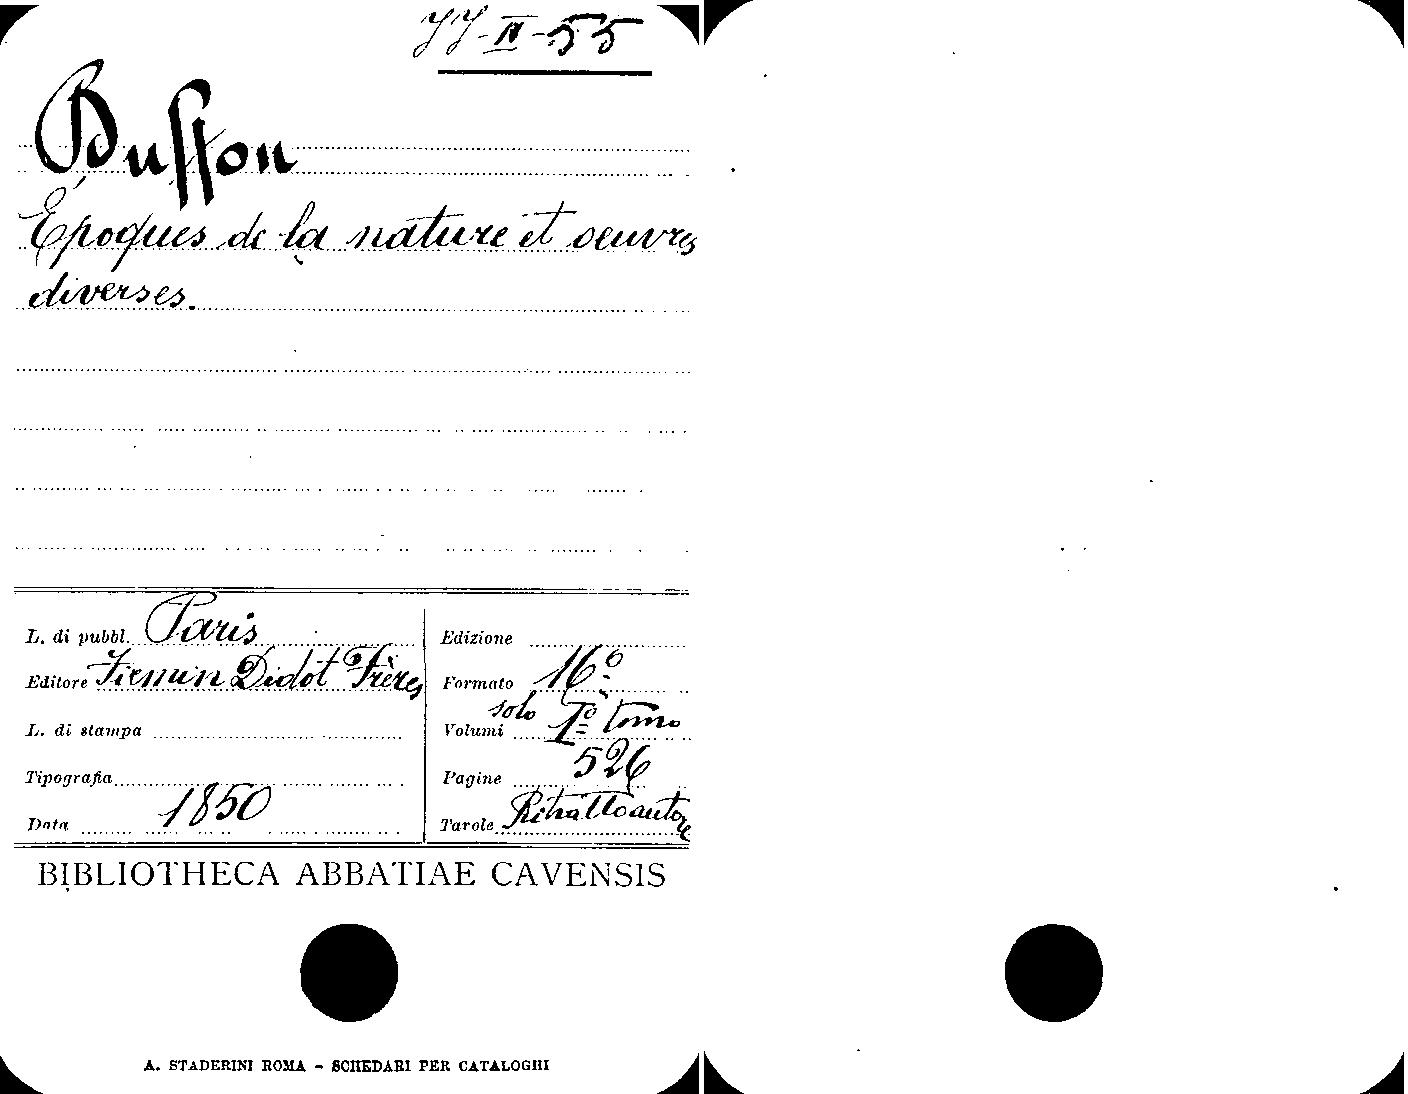 YY-IV-55
Buffon
Époques de la nature et oeuvres
diverses.
L. di pubbl. Paris
Editore Firmin Didot Frères
L. di stampa
Tipografia
Data 1850
Edizione
Formato 16º
Volumi solo Iº tomo
Pagine 526
Tavole Ritratto autore
BIBLIOTHECA ABBATIAE CAVENSIS
A. STADERINI ROMA - SCHEDARI PER CATALOGHI